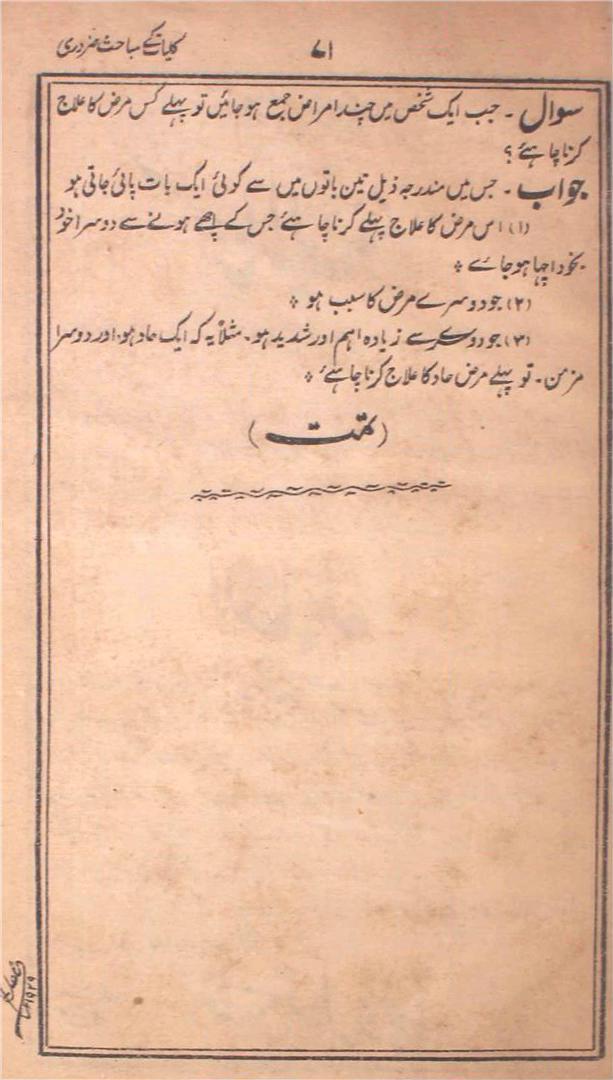 ۷۱ کلیات کے مباحث ضروری
سوال ۔ جب ایک شخص میں چند امراض جمع ہوجائیں تو پہلے کس مرض کا علاج
کرنا چاہئے ؟
جواب ۔ جس میں مندرجہ ذیل تین باتوں میں سے کوئی ایک بات پائی جاتی ہو
(۱) اس مرض کا علاج پہلے کرنا چاہئے جس کے اچھے ہونے سے دوسرا خود
بخود اچھا ہوجائے ٭
(۲) جو دوسرے مرض کا سبب ہو ٭
(۳) جو دوسرے سے زیادہ اہم اور شدید ہو ۔ مثلاً یہ کہ ایک حاد ہو ۔ اور دوسرا
مزمن ۔ تو پہلے مرض حاد کا علاج کرنا چاہئے ٭
(تمت)